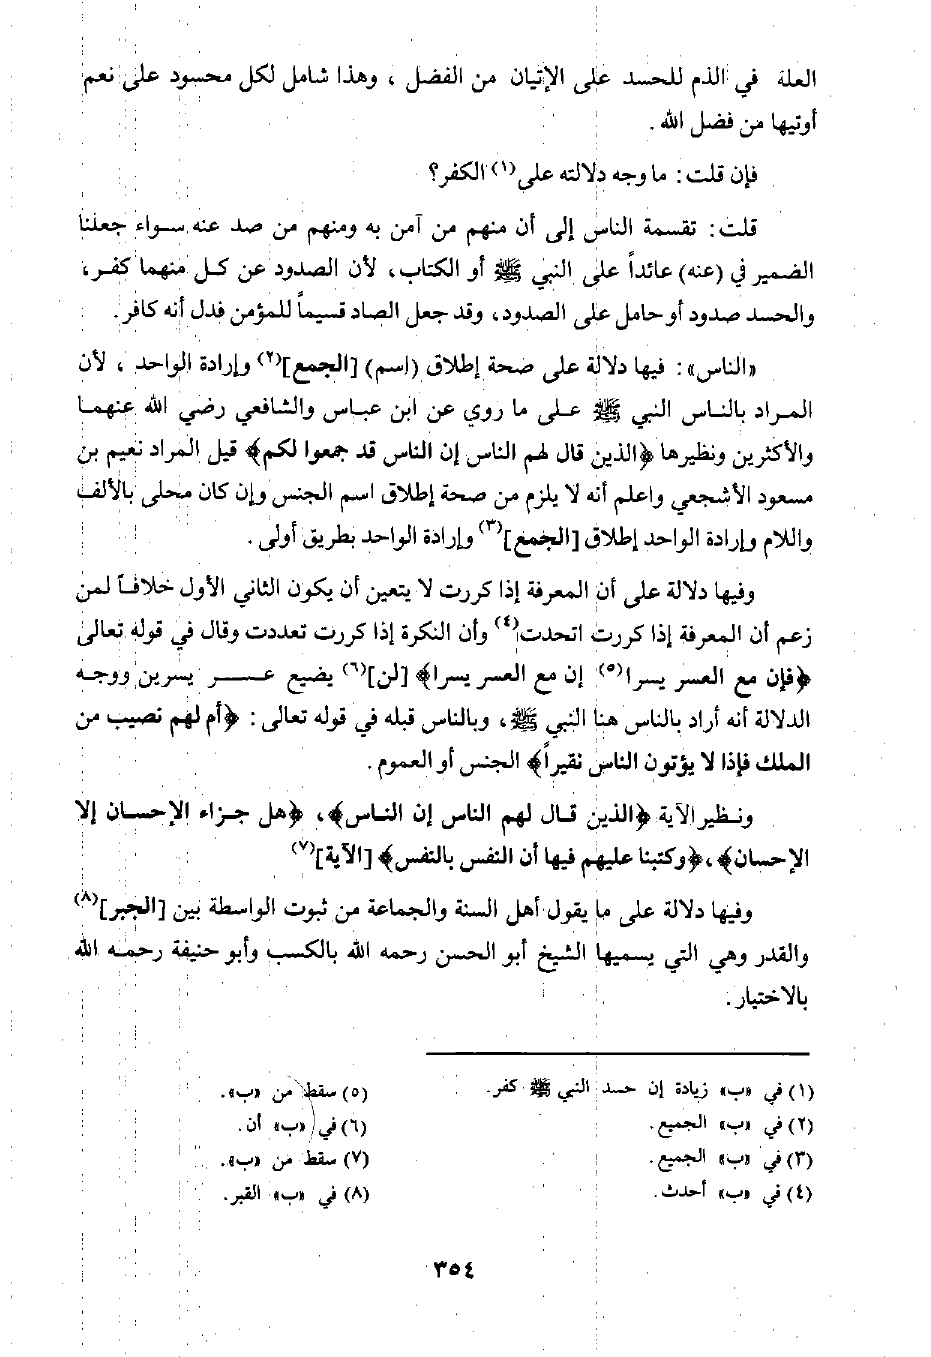 العلة في الذم للحسد على الإتيان من الفضل ، وهذا شامل لكل محسود على نعم
أوتيها من فضل الله .
فإن قلت : ما وجه دلالته على(١) الكفر؟
قلت : تقسمة الناس إلى أن منهم من آمن به ومنهم من صد عنه سواء جعلنا
الضمير في (عنه) عائداً على النبي ﷺ أو الكتاب، لأن الصدود عن كل منهما كفر،
والحسد صدود أو حامل على الصدود، وقد جعل الصاد قسيماً للمؤمن فدل أنه كافر .
«الناس» : فيها دلالة على صحة إطلاق (اسم) [الجمع](٢) وإرادة الواحد ، لأن
المراد بالناس النبي ﷺ على ما روي عن ابن عباس والشافعي رضي الله عنهما
والأكثرين ونظيرها ﴿الذين قال لهم الناس إن الناس قد جمعوا لكم﴾ قيل المراد نعيم بن
مسعود الأشجعي واعلم أنه لا يلزم من صحة إطلاق اسم الجنس وإن كان محلى بالألف
واللام وإرادة الواحد إطلاق [الجمع](٣) وإرادة الواحد بطريق أولى .
وفيها دلالة على أن المعرفة إذا كررت لا يتعين أن يكون الثاني الأول خلافاً لمن
زعم أن المعرفة إذا كررت اتحدت(٤) وأن النكرة إذا كررت تعددت وقال في قوله تعالى
﴿فإن مع العسر يسرا(٥) إن مع العسر يسرا﴾ [لن](٦) يضيع عسر يسرين ووجه
الدلالة أنه أراد بالناس هنا النبي ﷺ، وبالناس قبله في قوله تعالى : ﴿أم لهم نصيب من
الملك فإذا لا يؤتون الناس نقيراً﴾ الجنس أو العموم .
ونظير الآية ﴿الذين قال لهم الناس إن الناس﴾، ﴿هل جزاء الإحسان إلا
الإحسان﴾،﴿وكتبنا عليهم فيها أن النفس بالنفس﴾ [الآية](٧)
وفيها دلالة على ما يقول أهل السنة والجماعة من ثبوت الواسطة بين [الجبر](٨)
والقدر وهي التي يسميها الشيخ أبو الحسن رحمه الله بالكسب وأبو حنيفة رحمه الله
بالاختيار .
(١) في «ب» زيادة إن حسد النبي ﷺ كفر.
(٢) في «ب» الجميع.
(٣) في «ب» الجميع.
(٤) في «ب» أحدث.
(٥) سقط من «ب».
(٦) في «ب» أن.
(٧) سقط من «ب».
(٨) في «ب» القبر.
٣٥٤